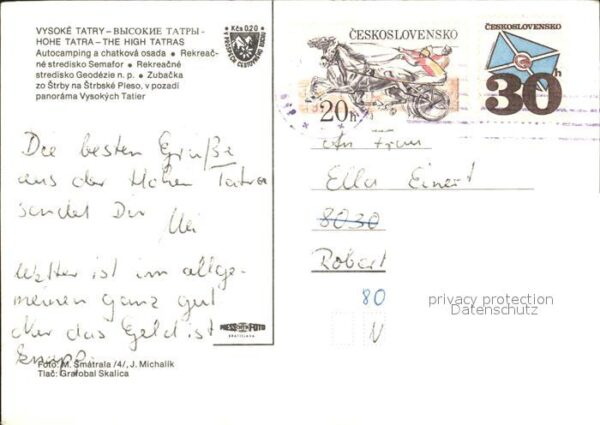 VYSOKÉ TATRY – ВЫСОКИЕ ТАТРЫ -
HOHE TATRA – THE HIGH TATRAS
Autocamping a chatková osada • Rekreač-
né stredisko Semafor • Rekreačné
stredisko Geodézie n. p. • Zubačka
zo Štrby na Štrbské Pleso, v pozadí
panoráma Vysokých Tatier
Kčs 0,20
ČESKOSLOVENSKO
20h
ČESKOSLOVENSKO
30h
Die besten Grüße
aus der Hohen Tatra
sendet Dir
Wetter ist im allge-
meinen ganz gut
Nur das Geld ist
knapp.
An Frau
Ella
8030
80
N
privacy protection
Datenschutz
PRESSFOTO
BRATISLAVA
Foto: M. Smatrala /4/, J. Michalík
Tlač: Grafobal Skalica